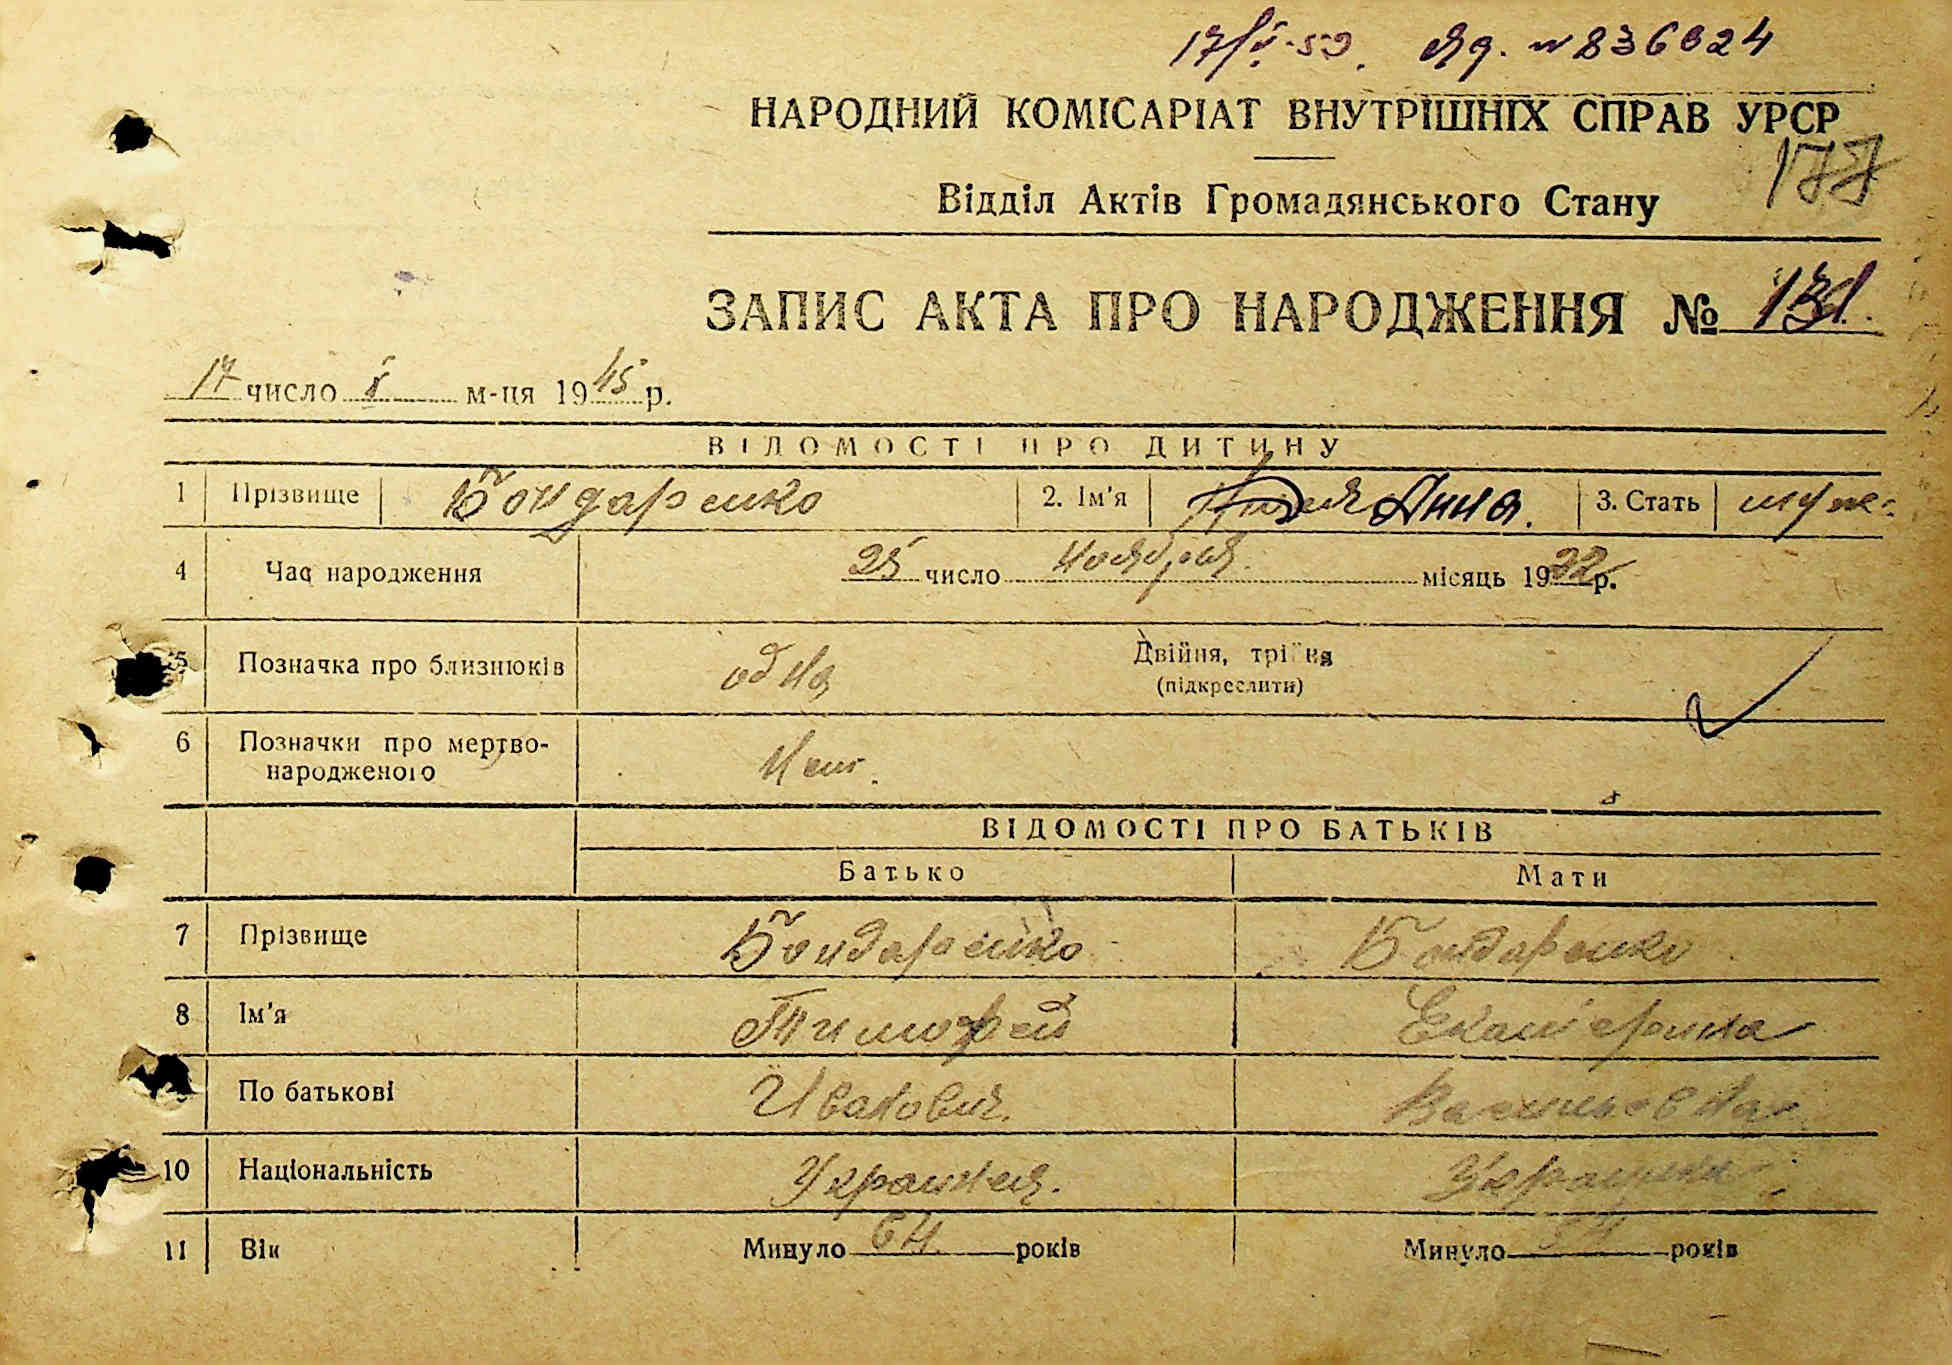 17/V-59. Яд. № 836024
НАРОДНИЙ КОМІСАРІАТ ВНУТРІШНІХ СПРАВ УРСР
177
Відділ Актів Громадянського Стану
ЗАПИС АКТА ПРО НАРОДЖЕННЯ № 131.
17 число V м-ця 1945 р.
ВІДОМОСТІ ПРО ДИТИНУ
1 Прізвище Бондаренко 2. Ім'я Анна. 3. Стать
4 Час народження 25 число ноября місяць 1922 р.
5 Позначка про близнюків одна Двійня, трійня
(підкреслити)
6 Позначки про мертво-
народженого Нет.
ВІДОМОСТІ ПРО БАТЬКІВ
Батько Мати
7 Прізвище Бондаренко Бондаренко
8 Ім'я Тимофей Екатерина
9 По батькові Иванович. Васильевна
10 Національність Украинец. Украинка
11 Вік Минуло 64 років Минуло 54 років